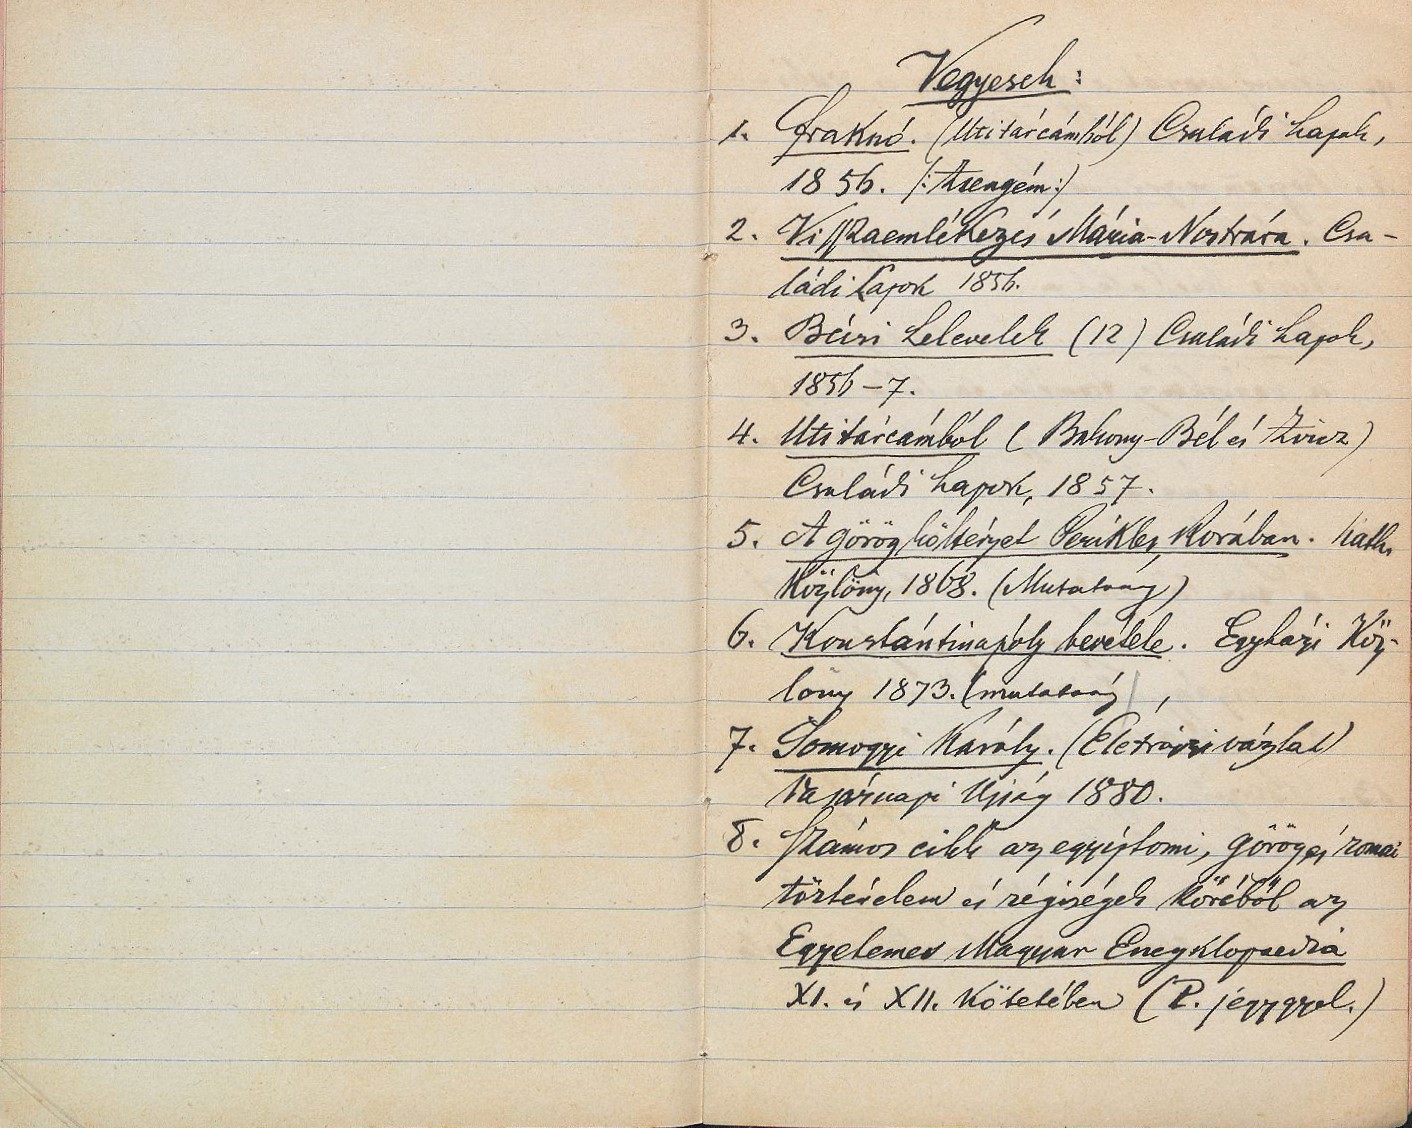 Vegyesek:
1. Fraknó. (Uti tárcámból) Családi Lapok,
1856. (: :)
2. Visszaemlékezés Mária-Nostrára. Csa-
ládi Lapok 1856.
3. Bécsi Levelek (12) Családi Lapok,
1856-7.
4. Uti tárcámból (Bakony-Bél és Zircz)
Családi Lapok, 1857.
5. A görög költészet Perikles korában. Kath.
Közlöny, 1868. (Mutatvány)
6. Konstántinápoly bevétele. Egyházi Köz-
löny 1873. (mutatvány),
7. Somogyi Károly. (Életrajzi vázlat)
Vasárnapi Ujság 1880.
8. Számos cikk az egyiptomi, görög és romai
történelem és régiségek köréből az
Egyetemes Magyar Encyklopaedia
XI. és XII. kötetében (P. jegygyel.)